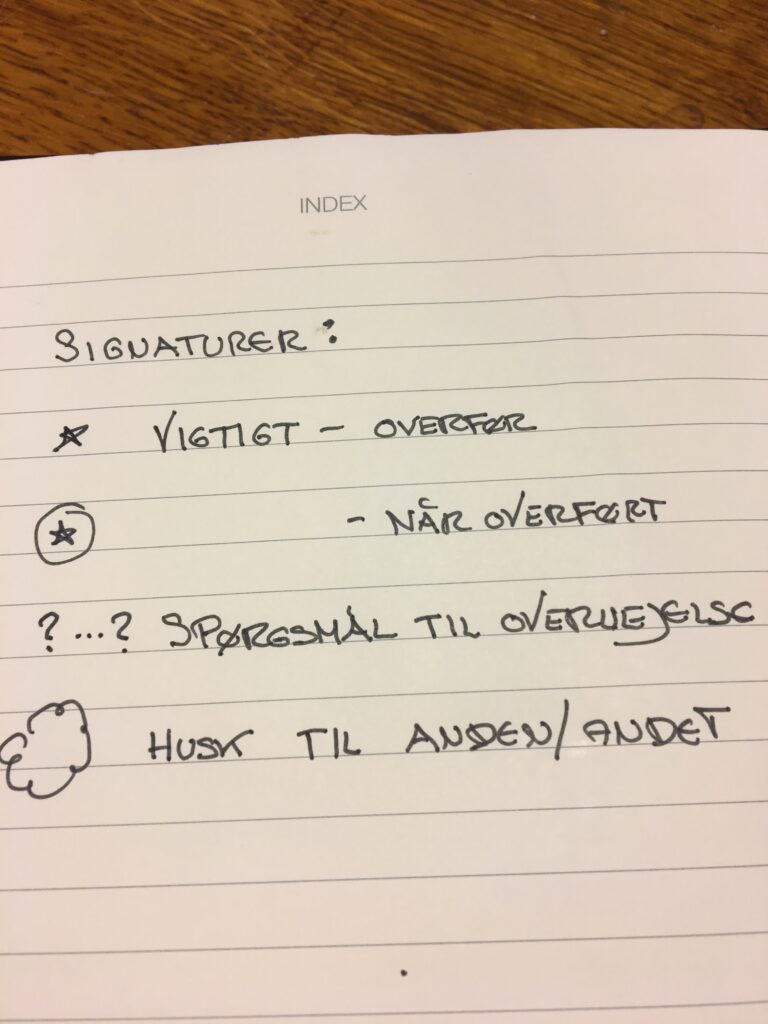 INDEX
SIGNATURER:
VIGTIGT - OVERFØR
- NÅR OVERFØRT
?...? SPØRGSMÅL TIL OVERVEJELSE
HUSK TIL ANDEN/ANDET